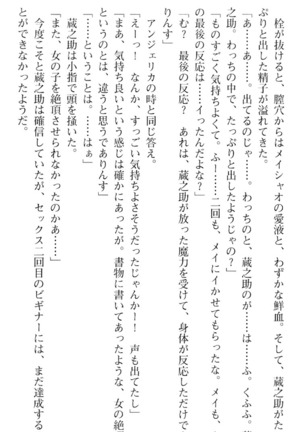 栓が抜けると、膣穴からはメイシャオの愛液と、わずかな鮮血。そして、蔵之助がた
ぷりと出した精子が溢れてきた。
「あ……あ……。出てるのじゃ……。わっちのと、蔵之助のが……は……ふ。くふふ。蔵
之助。わっちの中で、たっぷりと出したようじゃの？」
「ものすごく気持ちよくて。ふー……二回も、メイにイかせてもらったな。メイも、
の最後の反応は……イったんだよな？」
「む？　最後の反応？　あれは、蔵之助が放った魔力を受けて、身体が反応しただけで
りんす」
アンジェリカの時と同じ答え。
「えーっ！　なんか、すっごい気持ちよさそうだったじゃんかー！　声も出てたし」
「まあ、気持ち良いという感じは確かにあったが。書物に書いてあったような、女の絶
というのとは、違うと思うでありんす」
「……ということは。……はぁ」
蔵之助は小指で頭を掻いた。
「また、女の子を絶頂させられなかったのかあ……」
今度こそと蔵之助は確信していたが、セックス二回目のビギナーには、まだ達成する
とができなかったようだ。